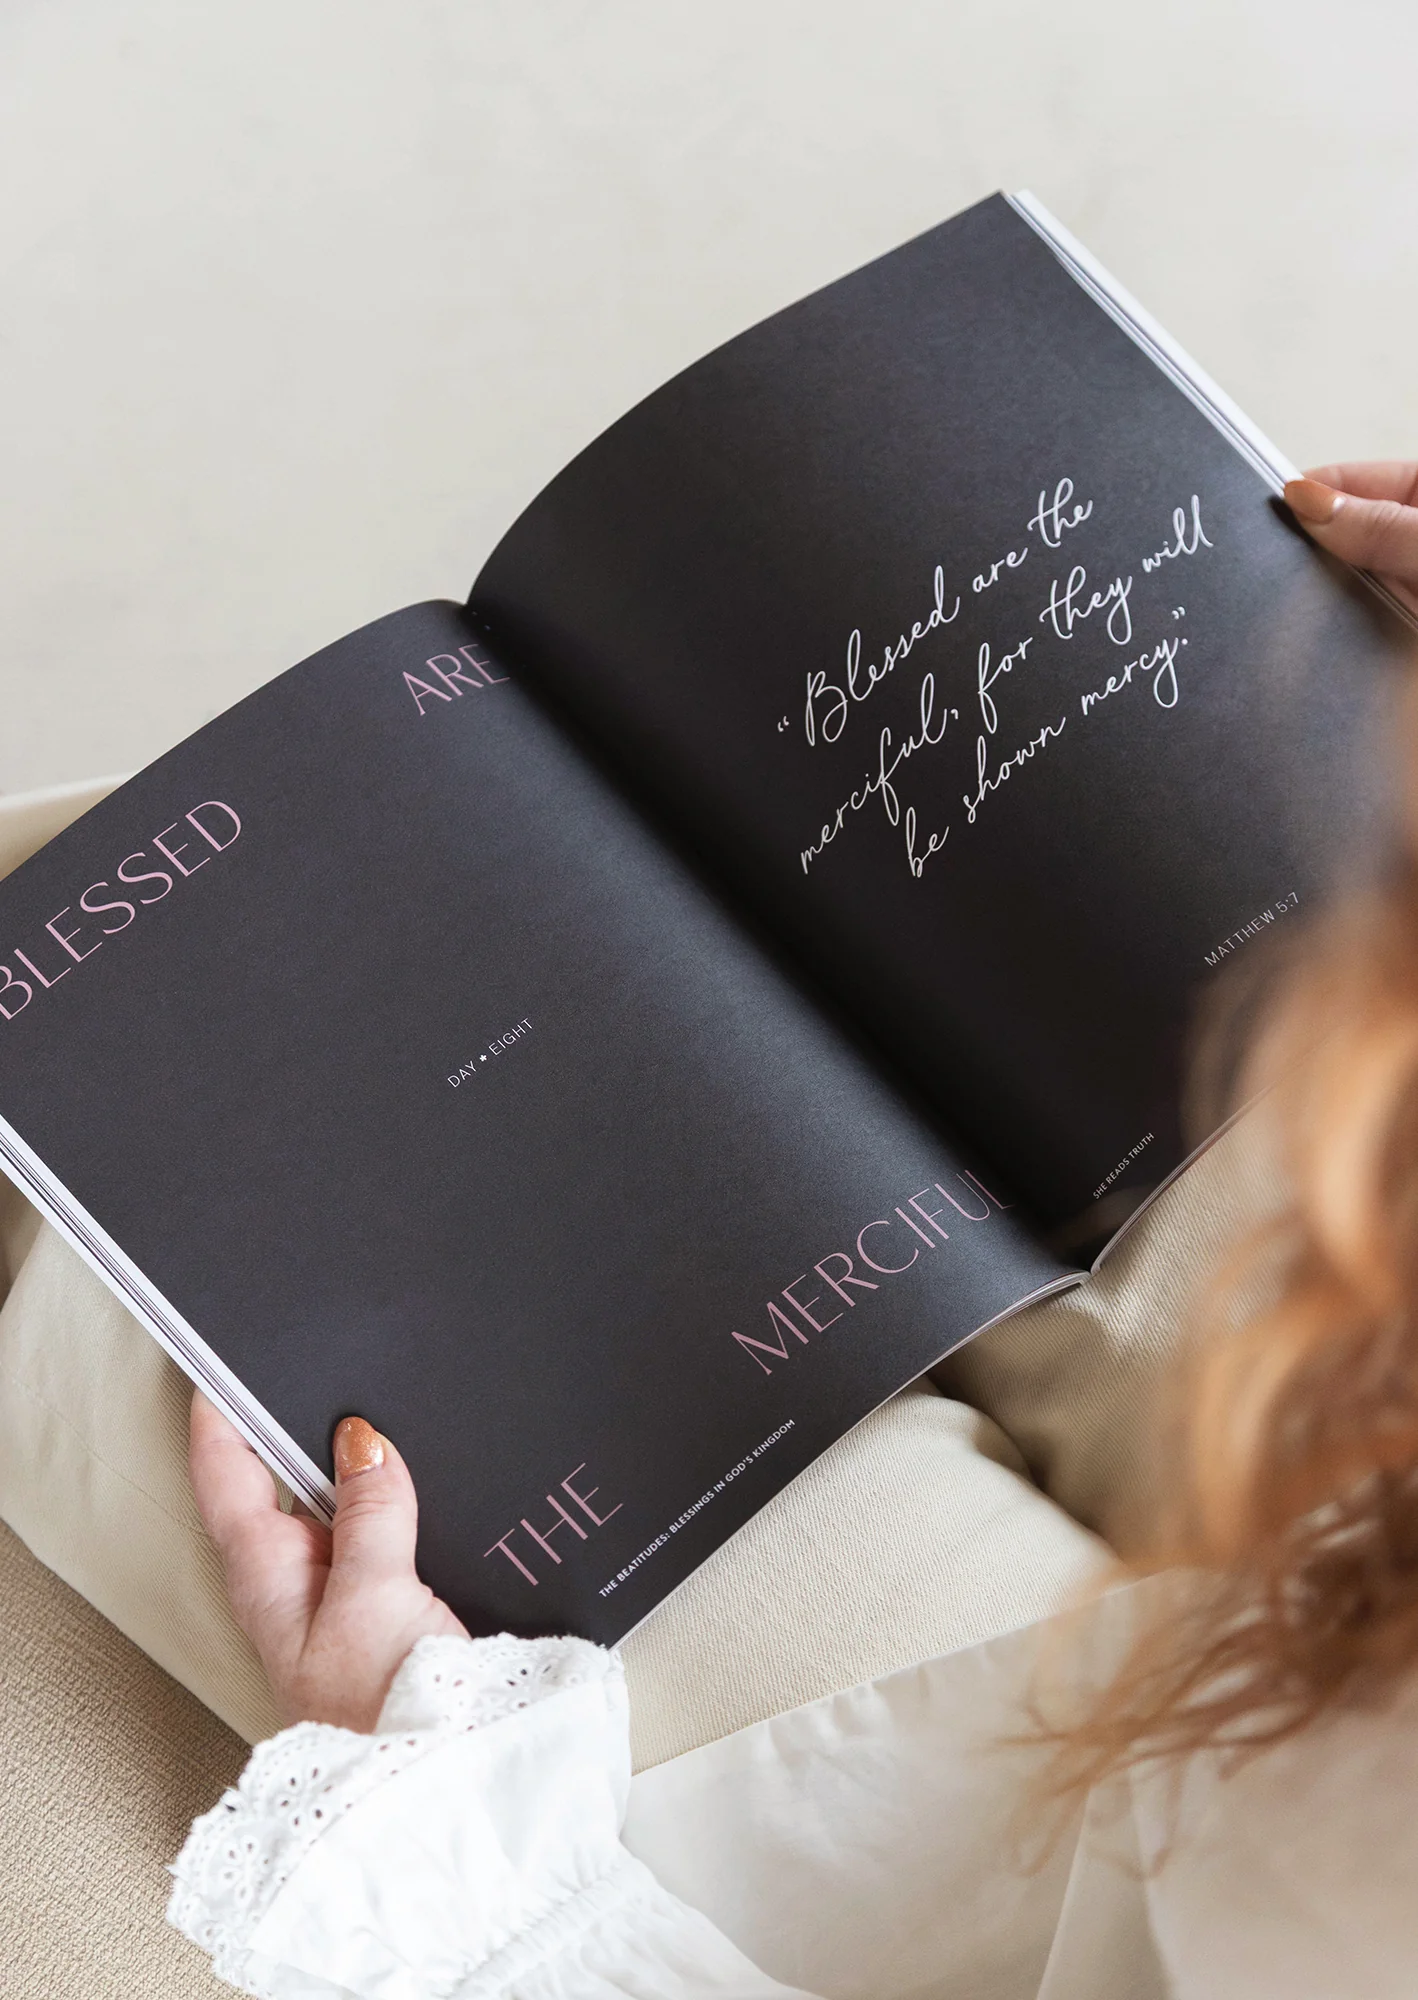 BLESSED
ARE
DAY ★ EIGHT
THE
MERCIFUL
THE BEATITUDES: BLESSINGS IN GOD'S KINGDOM
“Blessed are the
merciful, for they will
be shown mercy.”
MATTHEW 5:7
SHE READS TRUTH